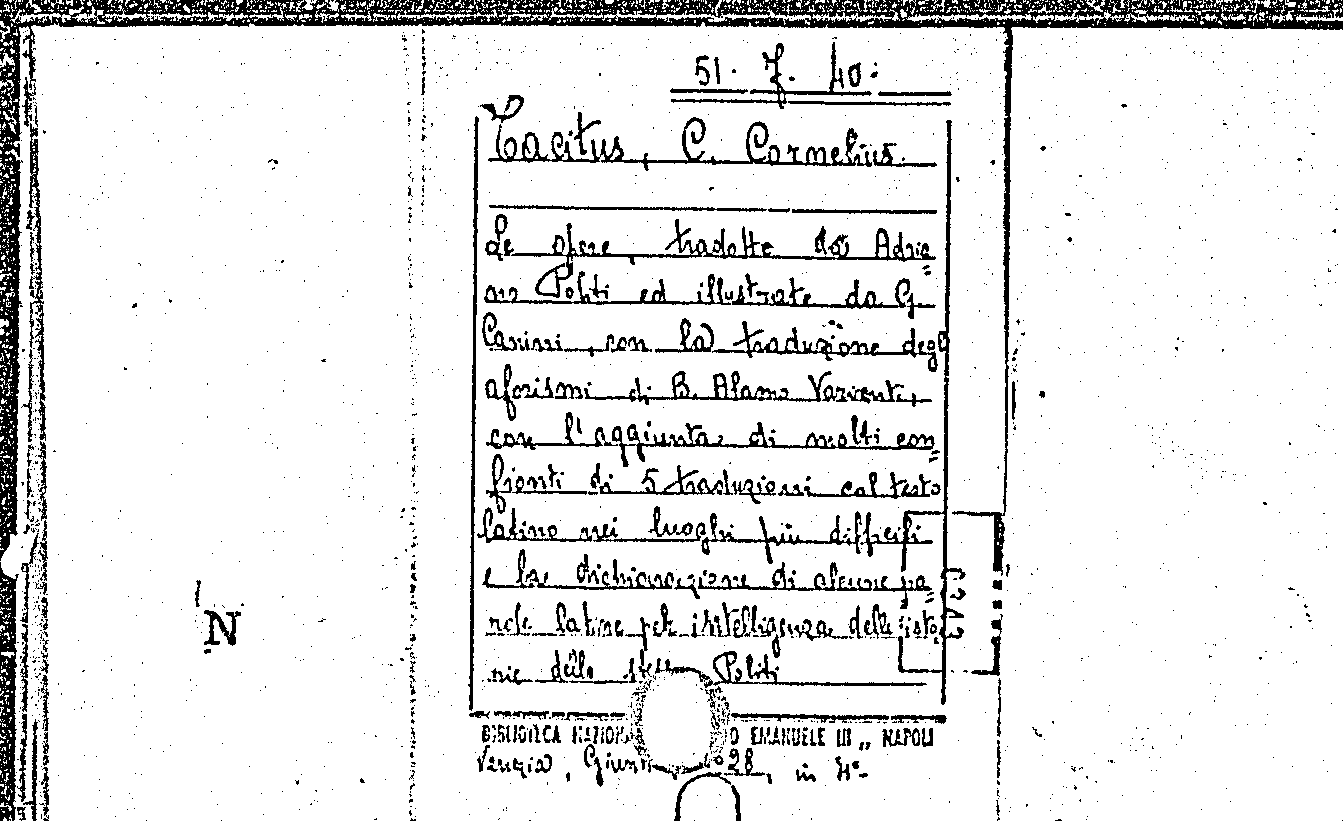 51. 7. 40.
Tacitus, C. Cornelius.
Le opere, tradotte da Adria=
no Politi ed illustrate da G.
Canini, con la traduzione degl
aforismi di B. Alamo Varienti,
con l'aggiunta di molti con=
fronti di 5 traduzioni col testo
latino nei luoghi più difficili
e la dichiarazione di alcune pa=
role latine per intelligenza delle isto=
rie dello Politi
BIBLIOTECA EMANUELE III „ NAPOLI
Venezia, in 4°.
N